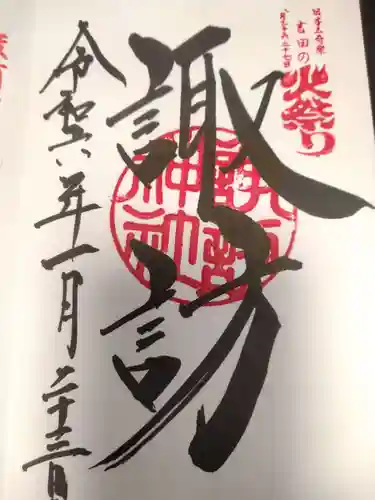 日本三奇祭
吉田の
火祭り
八月二十六、二十七日
諏訪
諏訪神社
令和六年一月二十三日